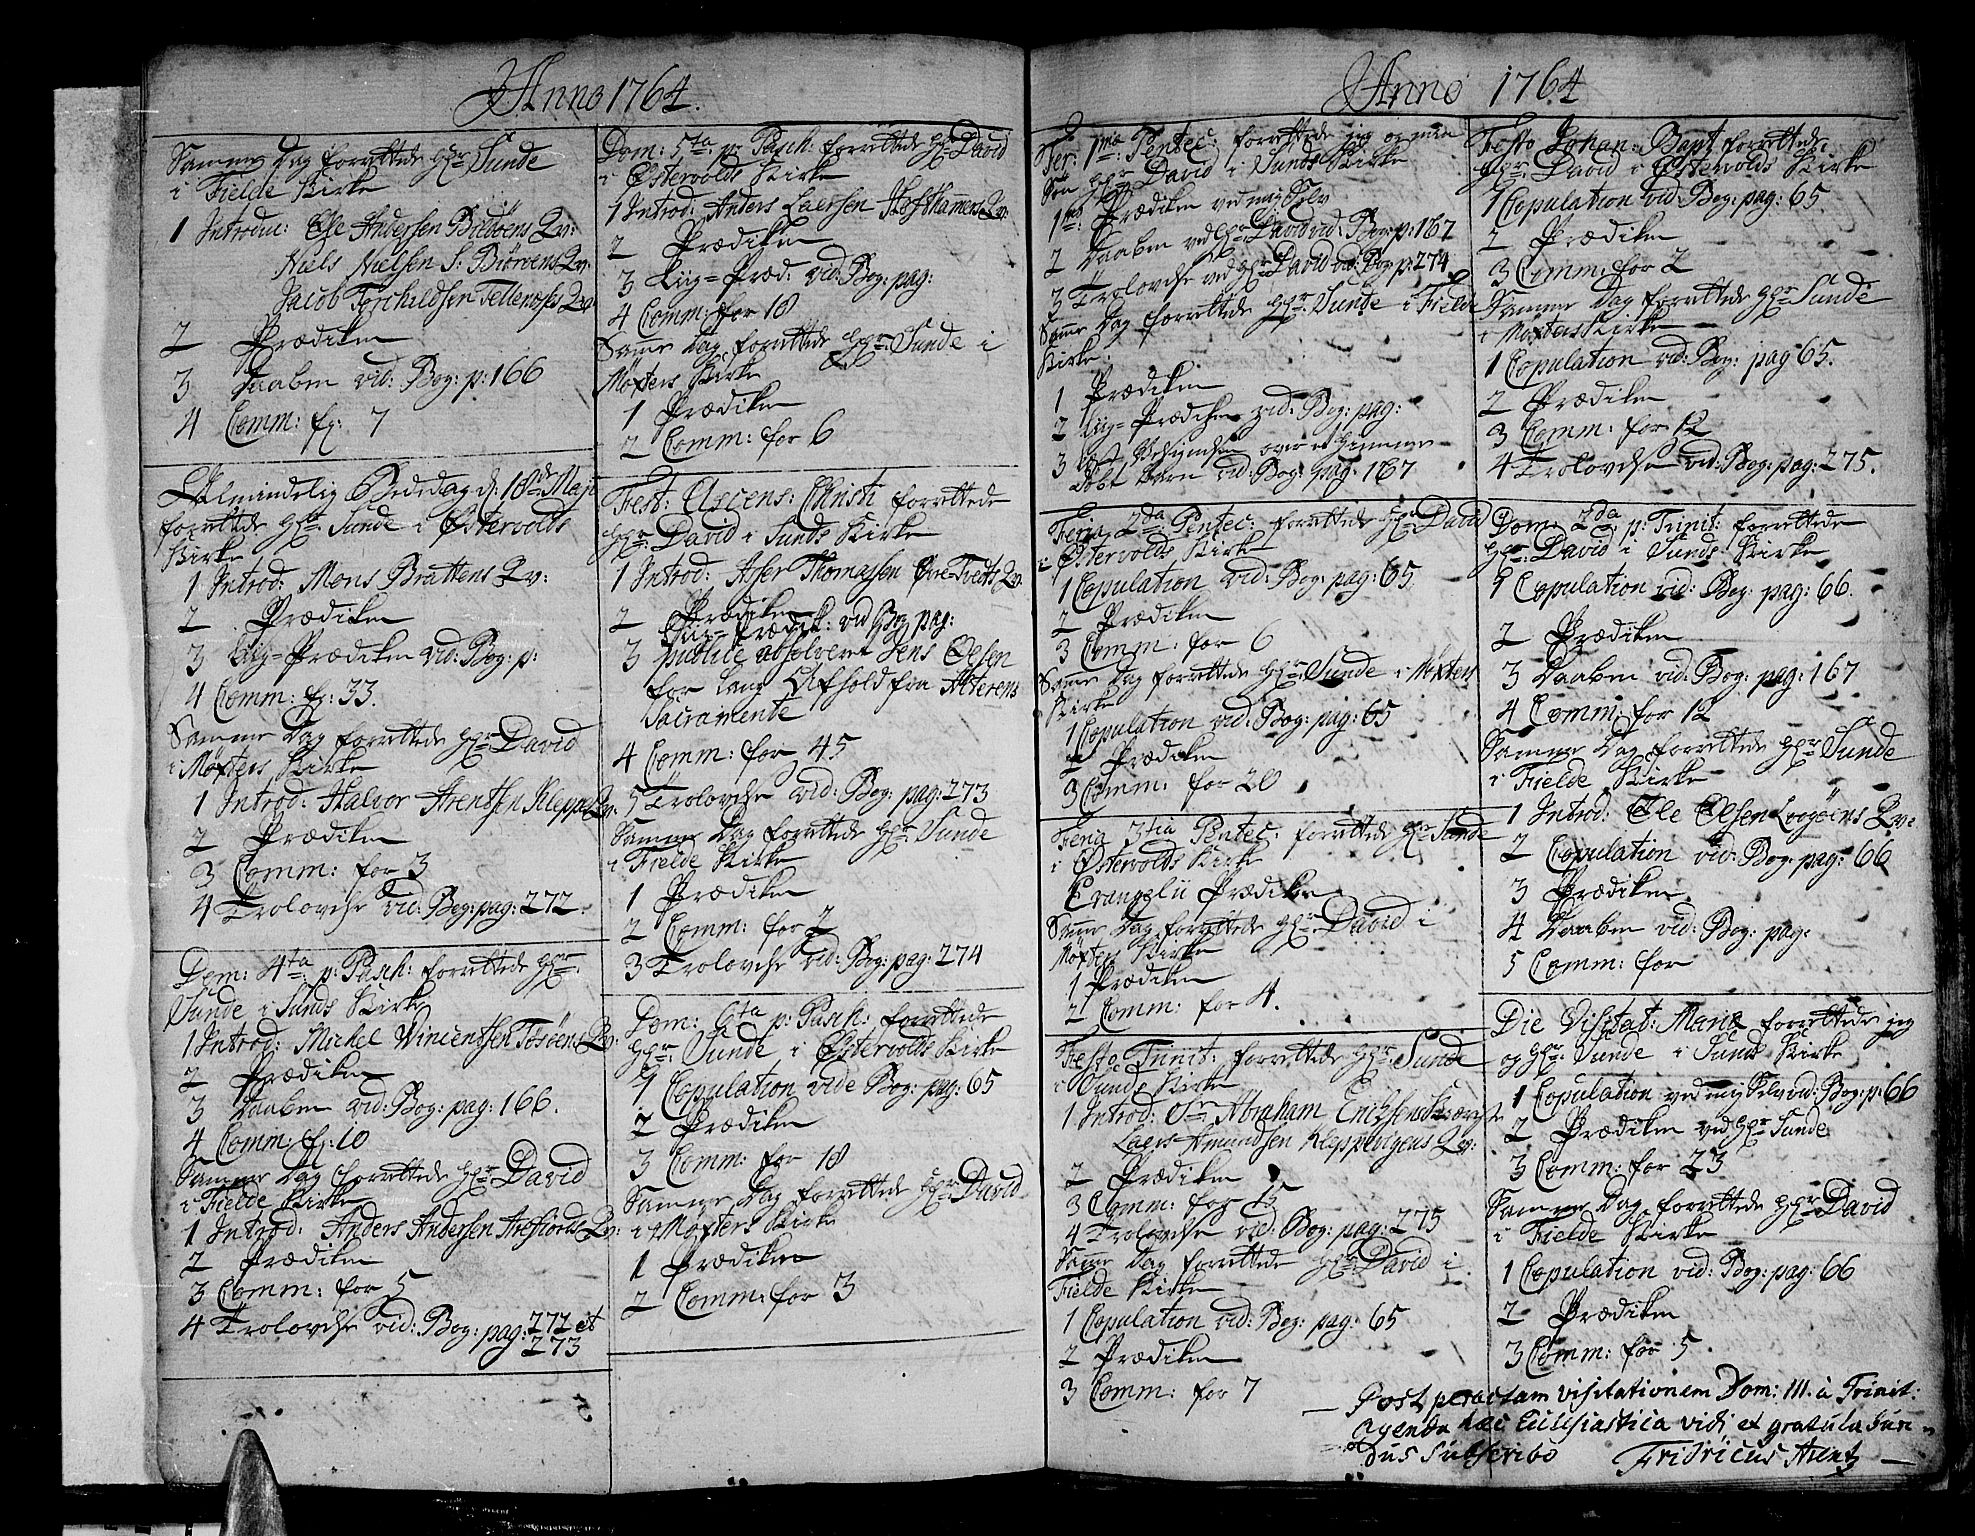 Anno 1764.
Samme Dag forrettede Hr Sunde
i Fielde Kirke
1 Introduc: Ole Andersen Bildøens Qv:
Niels Nielsen S: Biørøens Qv:
Jacob Torchildsen Tellenæses Qv:
2 Prædiken
3 Daaben vid: Bog: p: 166
4 Comm: f: 7
Allmindelig Bededag d: 18de Maji
forrettede Hr: Sunde i Østervolds
Kirke
1 Introd: Mons Brattens Qv:
2 Prædiken
3 Liig-Prædiken vid: Bog: p:
4 Comm: f: 33.
Samme Dag forrettede Hr David
i Møxters Kirke
1 Introd: Halvor Arentsen Kleppe Qv:
2 Prædiken
3 Comm: for 3
4 Trolovelse vid: Bog: pag: 272
Dom: 4ta p: Pasch: forrettede Hr:
Sunde i Sunds Kirke
1 Introd: Michel Vincentsen Tøsøens Qv:
2 Prædiken
3 Daaben vid: Bog: pag: 166.
4 Comm: f: 10
Samme Dag forrettede Hr David
i Fielde Kirke
1 Introd: Anders Andersen Arefiords Qv:
2 Prædiken
3 Comm: for 5
4 Trolovelse vid: Bog: pag: 272 et
273
Dom: 5ta p: Pasch: forrettede Hr David
i Østervolds Kirke
1 Introd: Anders Laersen Hofthamers Qv:
2 Prædiken
3 Liig-Præd: vid: Bog: pag:
4 Comm: for 18
Samme Dag forrettede Hr: Sunde i
Møxters Kirke
1 Prædiken
2 Comm: for 6
Fest: Ascens: Christi forrettede
Hr: David i Sunds Kirke
1 Introd: Asser Thomassen Øvre-Tvedts Qv:
2 Prædiken
Liig-Prædik: vid Bog pag:
3 publice absolveret Jens Olsen
for lang Afhold fra Alterens
Sacramente
4 Comm: for 45
5 Trolovelse vid: Bog: pag: 273
Samme Dag forrettede Hr Sunde
i Fielde Kirke
1 Prædiken
2 Comm: for 2
3 Trolovelse vid: Bog: pag: 274
Dom: 6ta p: Pasch: forrettede
Hr: Sunde i Østervolds Kirke
1 Copulation vide Bog: pag: 65
2 Prædiken
3 Comm: for 18
Samme Dag forrettede Hr David
i Møxters Kirke
1 Prædiken
2 Comm: for 3
Anno 1764
Fer: 1ma Pentec: forrettede jeg og min
Søn Hr David i Sunds Kirke
1mo: Prædiken ved mig Selv
2 Daaben ved Hr: David vid: Bog: p: 167
3 Trolovelse ved Hr: David vid: Bog: p: 274
Samme Dag forrettede Hr: Sunde i Fielde
Kirke:
1 Prædiken
2 Liig-Prædiken vid: Bog: pag:
3 over et hiemme-
døbt Barn vid: Bog: pag: 167
Feria 2da Pentec: forrettede Hr David
i Østervolds Kirke
1 Copulation vid: Bog: pag: 65
2 Prædiken
3 Comm: for 6
Samme Dag forrettede Hr: Sunde i Møxters
Kirke
1 Copulation vid: Bog: pag: 65
2 Prædiken
3 Comm: for 20
Feria 3tia Pentec: forrettede Hr Sunde
i Østervolds Kirke
Evangelii Prædiken
Samme Dag forrettede Hr: David i
Møxters Kirke
1 Prædiken
2 Comm: for 4.
Festo Trinit: forrettede Hr: Sunde
i Sunds Kirke
1 Introd: Sr Abraham Erichsens
Laers Amundsen Kleppevigens Qv:
2 Prædiken
3 Comm: for 15
4 Trolovelse vid: Bog: pag: 275
Samme Dag forrettede Hr: David i
Fielde Kirke
1 Copulation vid: Bog: pag: 65
2 Prædiken
3 Comm: for 7
Festo Johan: Bapt forrettede
Hr: David i Østervolds Kirke
1 Copulation vid Bog: pag: 65
2 Prædiken
3 Comm: for 2
Samme Dag forrettede Hr: Sunde
i Møxters Kirke
1 Copulation vid: Bog: pag 65.
2 Prædiken
3 Comm: for 12
4 Trolovelse vid: Bog: pag: 275.
Dom: 2da p: Trinit: forrettede
Hr: David i Sunds Kirke
1 Copulation vid: Bog: pag: 66.
2 Prædiken
3 Daaben vid: Bog: pag: 167
4 Comm: for 12
Samme Dag forrettede Hr Sunde
i Fielde Kirke
1 Introd: Ole Olsen Qv:
2 Copulation vid: Bog: pag: 66
3 Prædiken
4 Daaben vid: Bog: pag:
5 Comm: for
Die Visitat: Mariæ forrettede jeg
og Hr: Sunde i Sunds Kirke
1 Copulation ved mig Selv vid: Bog: p: 66
2 Prædiken ved Hr Sunde
3 Comm: for 23
Samme Dag forrettede Hr David
i Fielde Kirke
1 Copulation vid: Bog: pag: 66
2 Prædiken
3 Comm: for 5.
Post peractam visitationem Dom: III. à Trinit:
agenda hæc Ecclesiastica vidi et gratulabun-
dus subscribo Fridricus Arentz